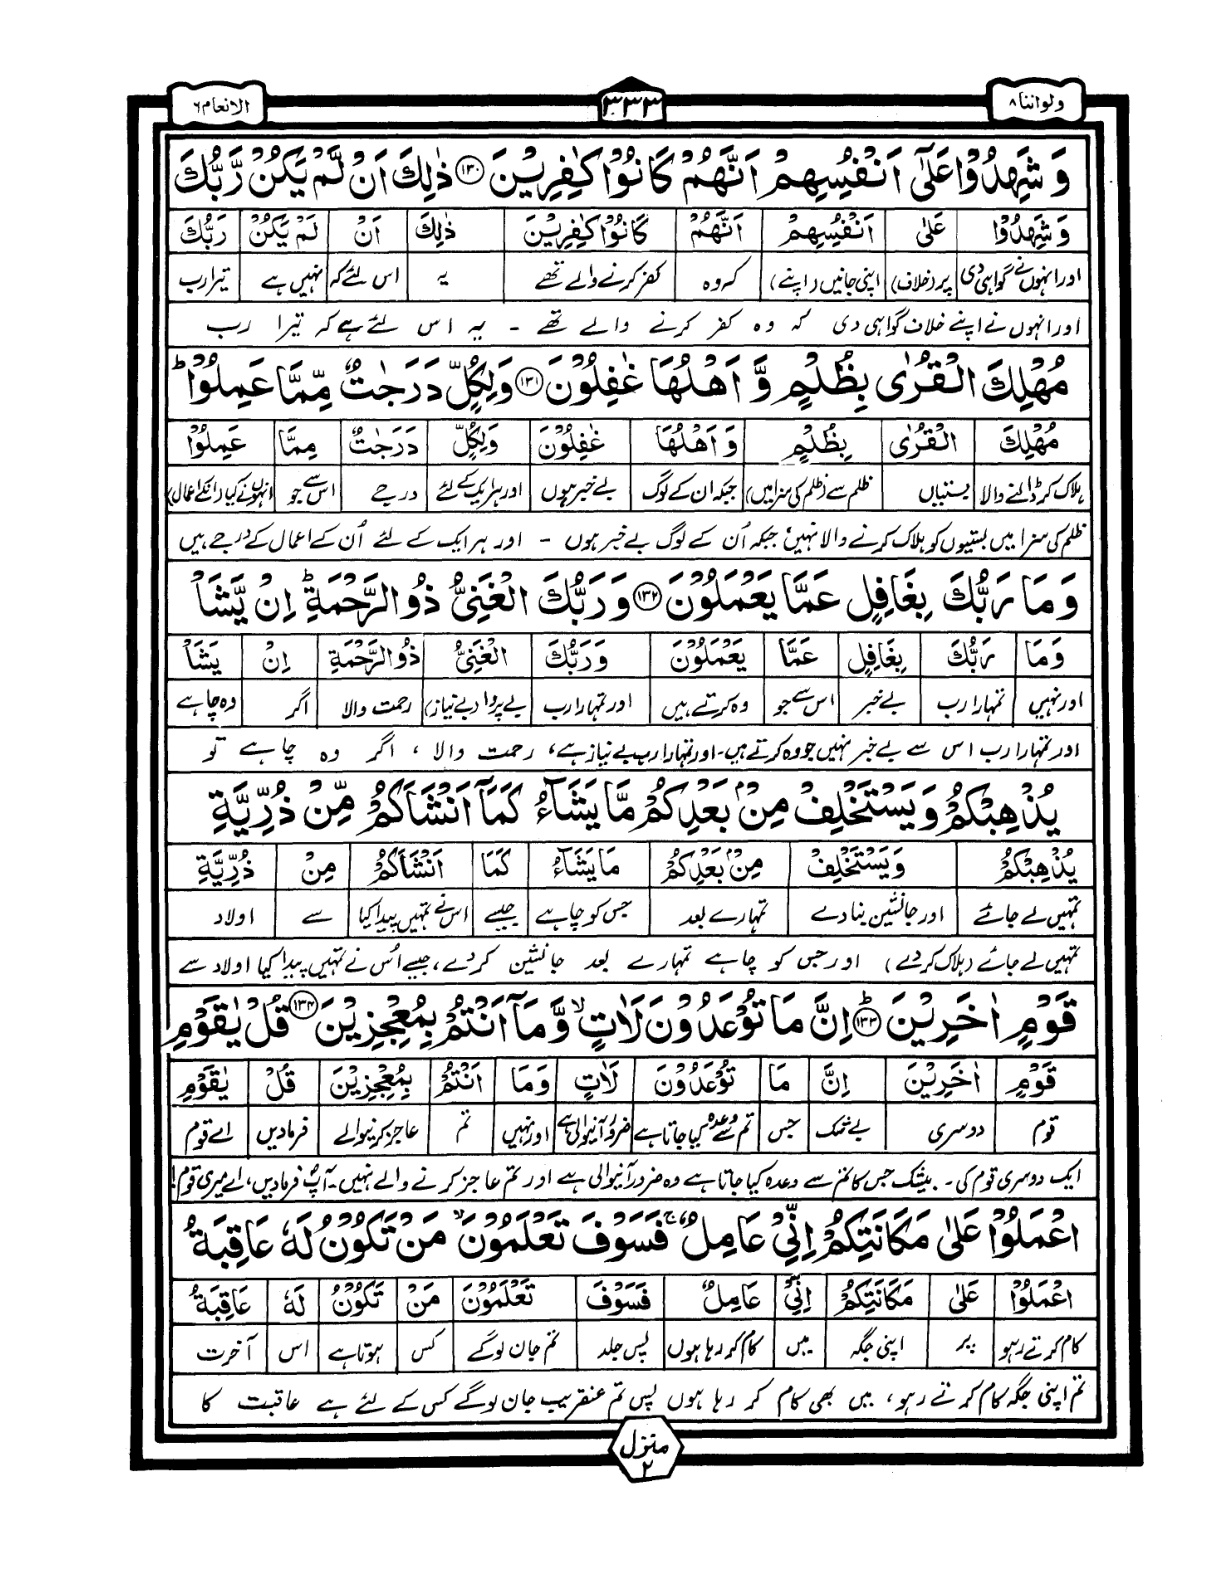 ولواننا ۸
۳۳۳
الانعام ۶
وَ شَهِدُوْا عَلٰۤى اَنْفُسِهِمْ اَنَّهُمْ كَانُوْا كٰفِرِيْنَ ۝۱۳۰ ذٰلِكَ اَنْ لَّمْ يَكُنْ رَّبُّكَ
وَ شَهِدُوْا عَلٰى اَنْفُسِهِمْ اَنَّهُمْ كَانُوْا كٰفِرِيْنَ ذٰلِكَ اَنْ لَمْ يَكُنْ رَبُّكَ
اور انہوں نے گواہی دی پر (خلاف) اپنی جانیں (اپنے) کہ وہ کفر کرنے والے تھے یہ اس لئے کہ نہیں ہے تیرا رب
اور انہوں نے اپنے خلاف گواہی دی کہ وہ کفر کرنے والے تھے - یہ اس لئے ہے کہ تیرا رب
مُهْلِكَ الْقُرٰى بِظُلْمٍ وَّ اَهْلُهَا غٰفِلُوْنَ ۝۱۳۱ وَلِكُلٍّ دَرَجٰتٌ مِّمَّا عَمِلُوْا ؕ
مُهْلِكَ الْقُرٰى بِظُلْمٍ وَ اَهْلُهَا غٰفِلُوْنَ وَلِكُلٍّ دَرَجٰتٌ مِمَّا عَمِلُوْا
ہلاک کر ڈالنے والا بستیاں ظلم سے (ظلم کی سزا میں) جبکہ ان کے لوگ بے خبر ہوں اور ہر ایک کے لئے درجے اس سے جو انہوں نے کیا (انکے اعمال)
ظلم کی سزا میں بستیوں کو ہلاک کرنے والا نہیں جبکہ اُن کے لوگ بے خبر ہوں - اور ہر ایک کے لئے اُن کے اعمال کے درجے ہیں
وَ مَا رَبُّكَ بِغَافِلٍ عَمَّا يَعْمَلُوْنَ ۝۱۳۲ وَ رَبُّكَ الْغَنِىُّ ذُو الرَّحْمَةِ ؕ اِنْ يَّشَاْ
وَمَا رَبُّكَ بِغَافِلٍ عَمَّا يَعْمَلُوْنَ وَرَبُّكَ الْغَنِىُّ ذُو الرَّحْمَةِ اِنْ يَشَاْ
اور نہیں تمہارا رب بے خبر اس سے جو وہ کرتے ہیں اور تمہارا رب بے پروا (بے نیاز) رحمت والا اگر وہ چاہے
اور تمہارا رب اس سے بے خبر نہیں جو وہ کرتے ہیں۔ اور تمہارا رب بے نیاز ہے، رحمت والا ، اگر وہ چاہے تو
يُذْهِبْكُمْ وَ يَسْتَخْلِفْ مِنْۢ بَعْدِكُمْ مَّا يَشَآءُ كَمَاۤ اَنْشَاَكُمْ مِّنْ ذُرِّيَّةِ
يُذْهِبْكُمْ وَيَسْتَخْلِفْ مِنْۢ بَعْدِكُمْ مَا يَشَآءُ كَمَا اَنْشَاَكُمْ مِنْ ذُرِّيَّةِ
تمہیں لے جائے اور جانشین بنا دے تمہارے بعد جس کو چاہے جیسے اس نے تمہیں پیدا کیا سے اولاد
تمہیں لے جائے (ہلاک کر دے) اور جس کو چاہے تمہارے بعد جانشین کر دے، جیسے اُس نے تمہیں پیدا کیا اولاد سے
قَوْمٍ اٰخَرِيْنَ ؕ ۝۱۳۳ اِنَّ مَا تُوْعَدُوْنَ لَاٰتٍ ۙ وَّ مَاۤ اَنْتُمْ بِمُعْجِزِيْنَ ۝۱۳۴ قُلْ يٰقَوْمِ
قَوْمٍ اٰخَرِيْنَ اِنَّ مَا تُوْعَدُوْنَ لَاٰتٍ وَمَا اَنْتُمْ بِمُعْجِزِيْنَ قُلْ يٰقَوْمِ
قوم دوسری بے شک جس تم سے وعدہ کیا جاتا ہے ضرور آنیوالی ہے اور نہیں تم عاجز کرنیوالے فرمادیں اے قوم
ایک دوسری قوم کی۔ بیشک جس کا تم سے وعدہ کیا جاتا ہے وہ ضرور آنیوالی ہے اور تم عاجز کرنے والے نہیں۔ آپؐ فرمادیں، اے میری قوم!
اعْمَلُوْا عَلٰى مَكَانَتِكُمْ اِنِّىْ عَامِلٌ ۚ فَسَوْفَ تَعْلَمُوْنَ ۙ مَنْ تَكُوْنُ لَهٗ عَاقِبَةُ
اعْمَلُوْا عَلٰى مَكَانَتِكُمْ اِنِّىْ عَامِلٌ فَسَوْفَ تَعْلَمُوْنَ مَنْ تَكُوْنُ لَهٗ عَاقِبَةُ
کام کرتے رہو پر اپنی جگہ میں کام کر رہا ہوں پس جلد تم جان لو گے کس ہوتا ہے اس آخرت
تم اپنی جگہ کام کرتے رہو، میں بھی کام کر رہا ہوں پس تم عنقریب جان لو گے کس کے لئے ہے عاقبت کا
منزل ۲